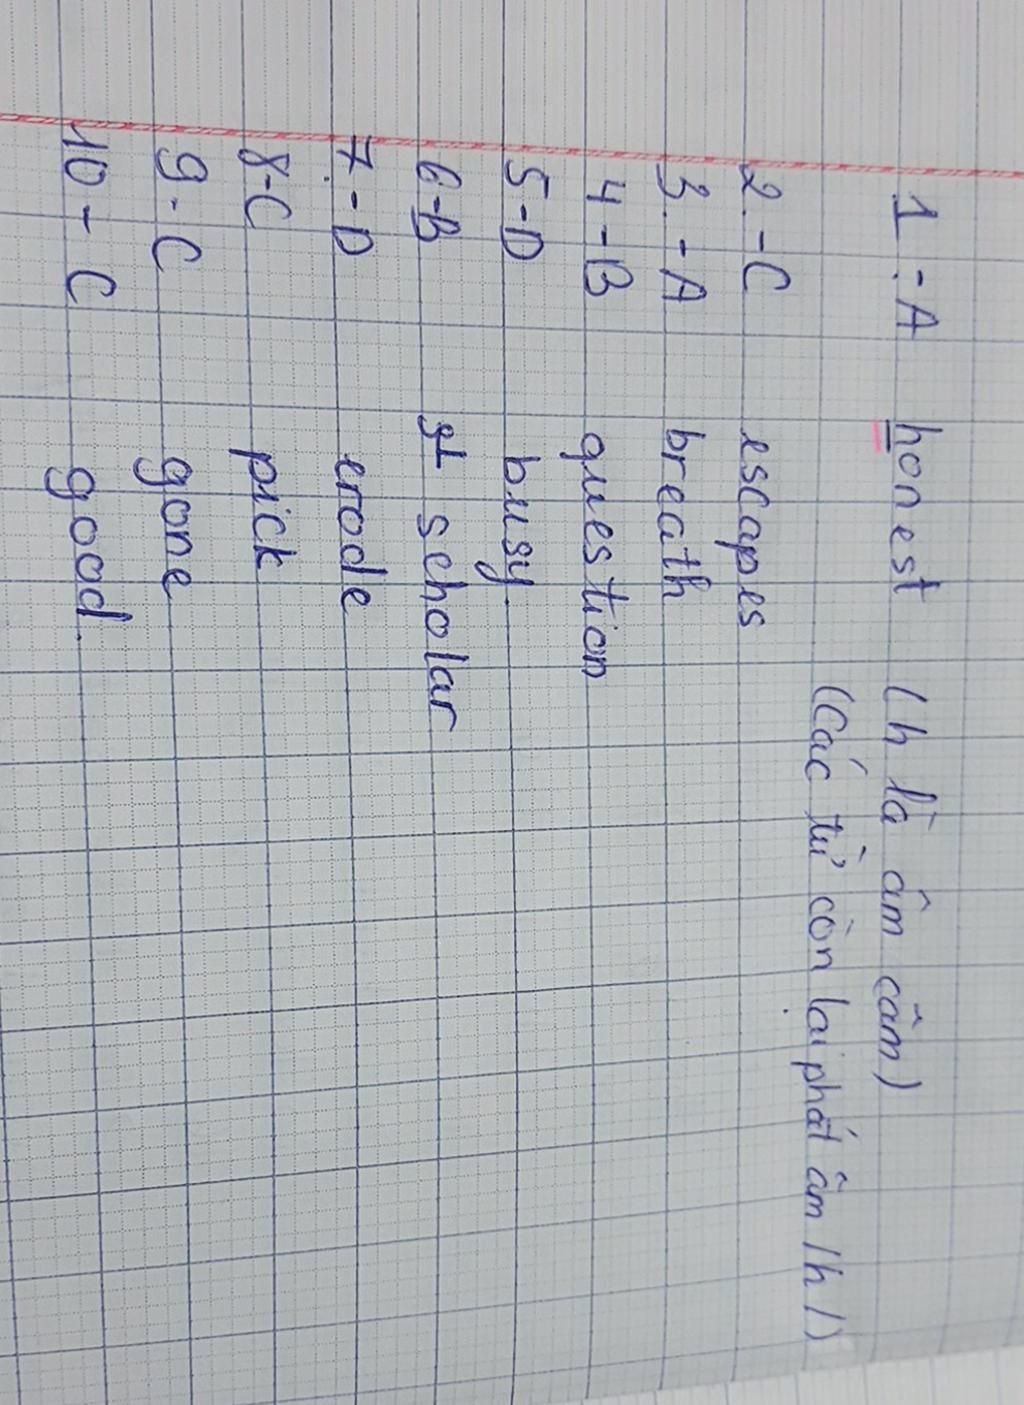 1. - A honest (h là âm câm)
(Các từ còn lại phát âm /h/)
2. - C escapes
3. - A breath
4 - B question
5 - D busy.
6 - B scholar
7. - D erode
8 - C pick
9. C gone
10 - C good.